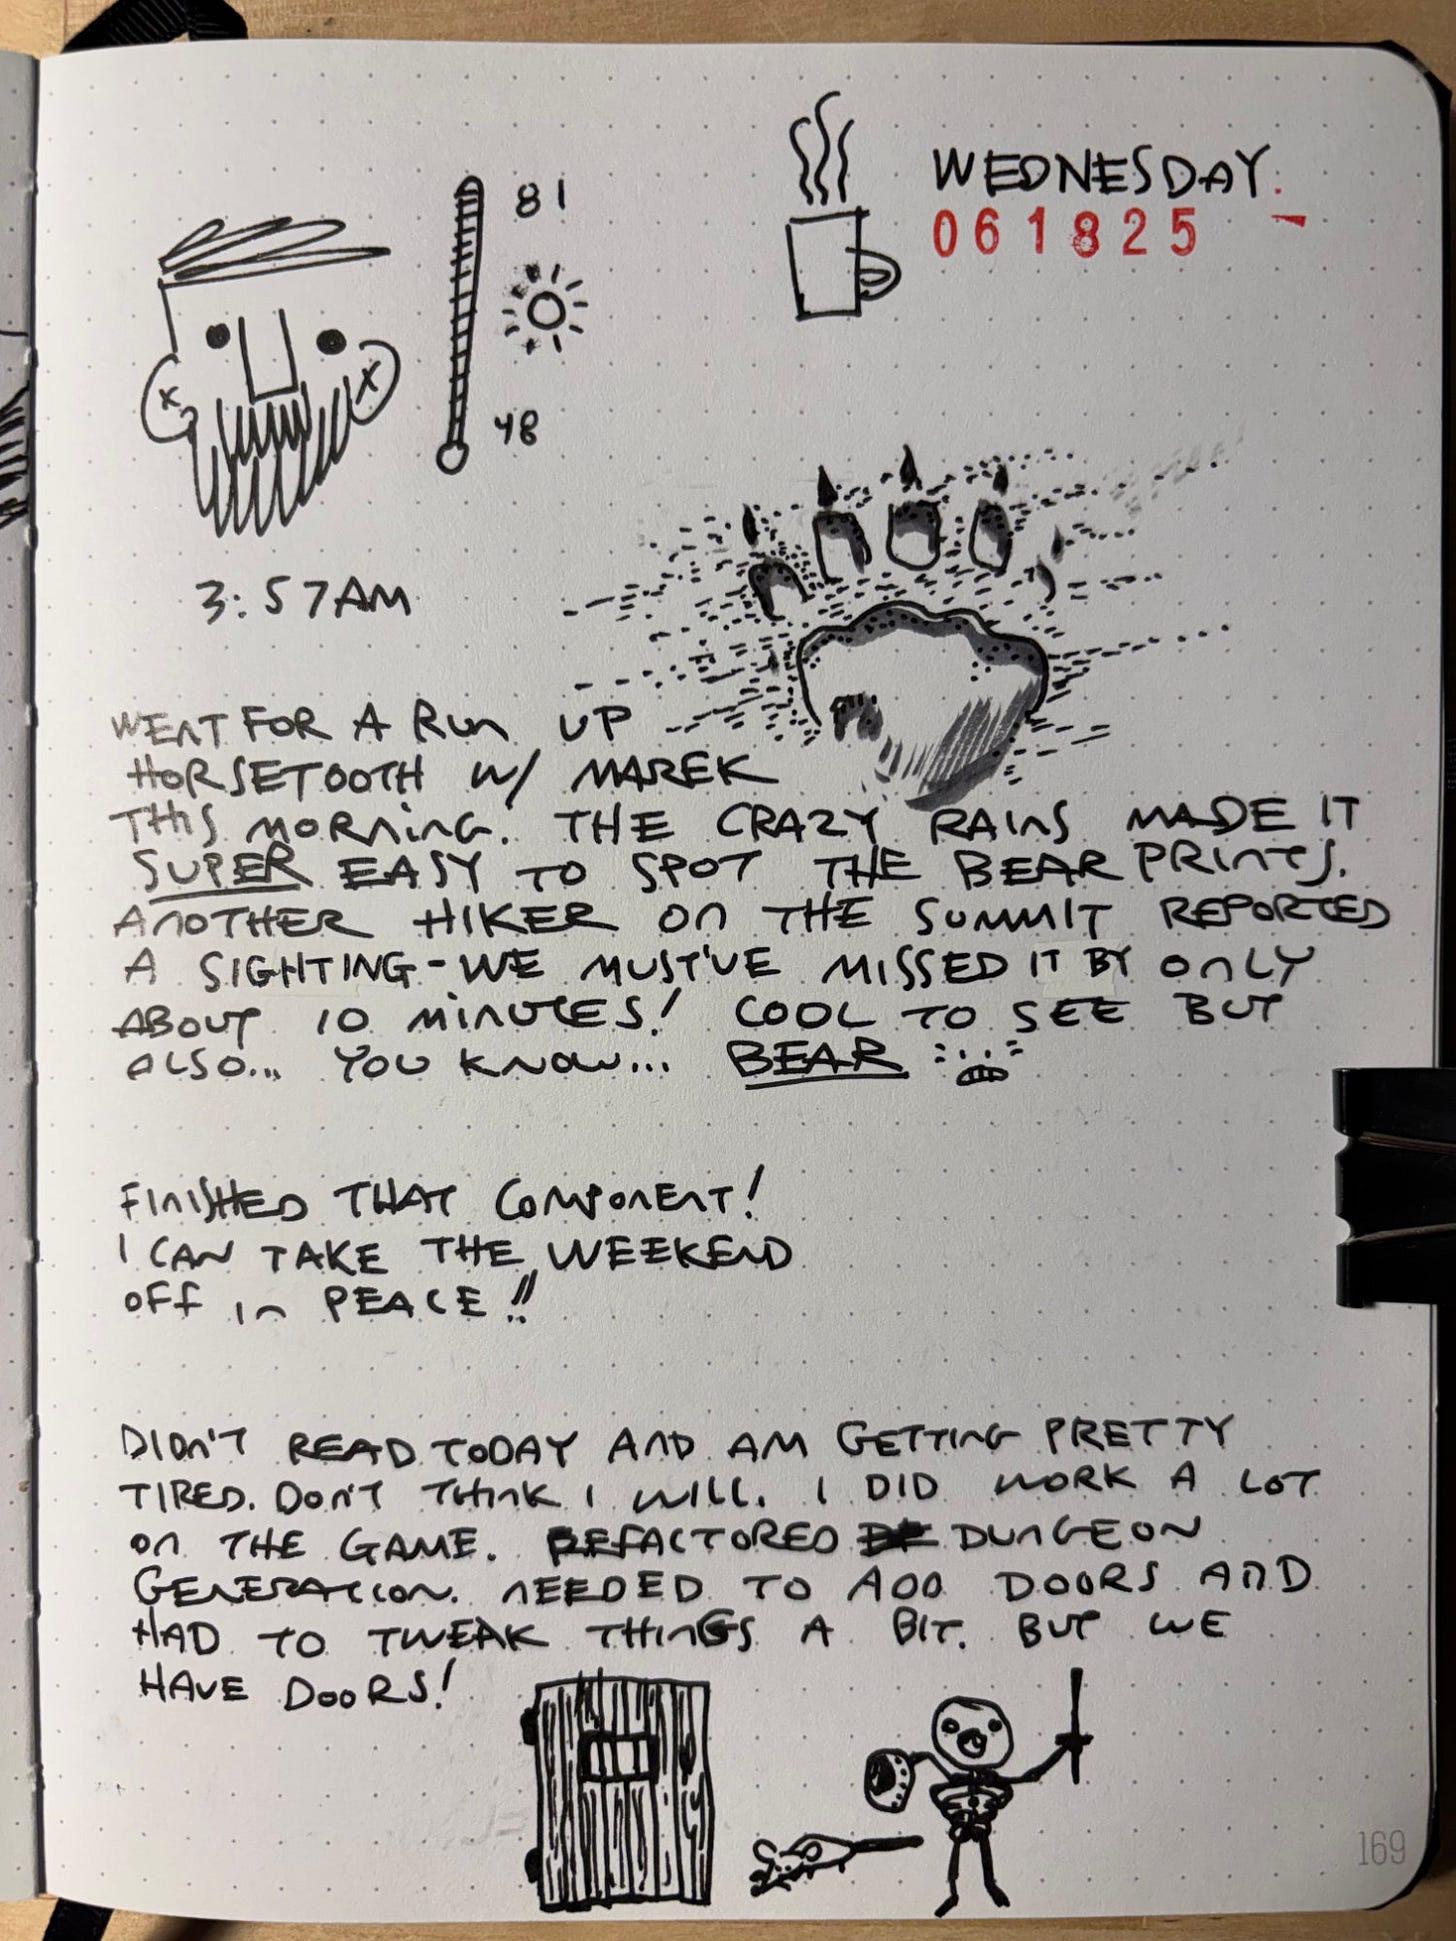 WEDNESDAY
061825
81
48
3:57AM
WENT FOR A RUN UP
HORSETOOTH W/ MAREK
THIS MORNING. THE CRAZY RAINS MADE IT
SUPER EASY TO SPOT THE BEAR PRINTS.
ANOTHER HIKER ON THE SUMMIT REPORTED
A SIGHTING-WE MUST'VE MISSED IT BY ONLY
ABOUT 10 MINUTES! COOL TO SEE BUT
ALSO... YOU KNOW... BEAR
FINISHED THAT COMPONENT!
I CAN TAKE THE WEEKEND
OFF IN PEACE!!
DIDN'T READ TODAY AND AM GETTING PRETTY
TIRED. DON'T THINK I WILL. I DID WORK A LOT
ON THE GAME. REFACTORED DUNGEON
GENERATION. NEEDED TO ADD DOORS AND
HAD TO TWEAK THINGS A BIT. BUT WE
HAVE DOORS!
169